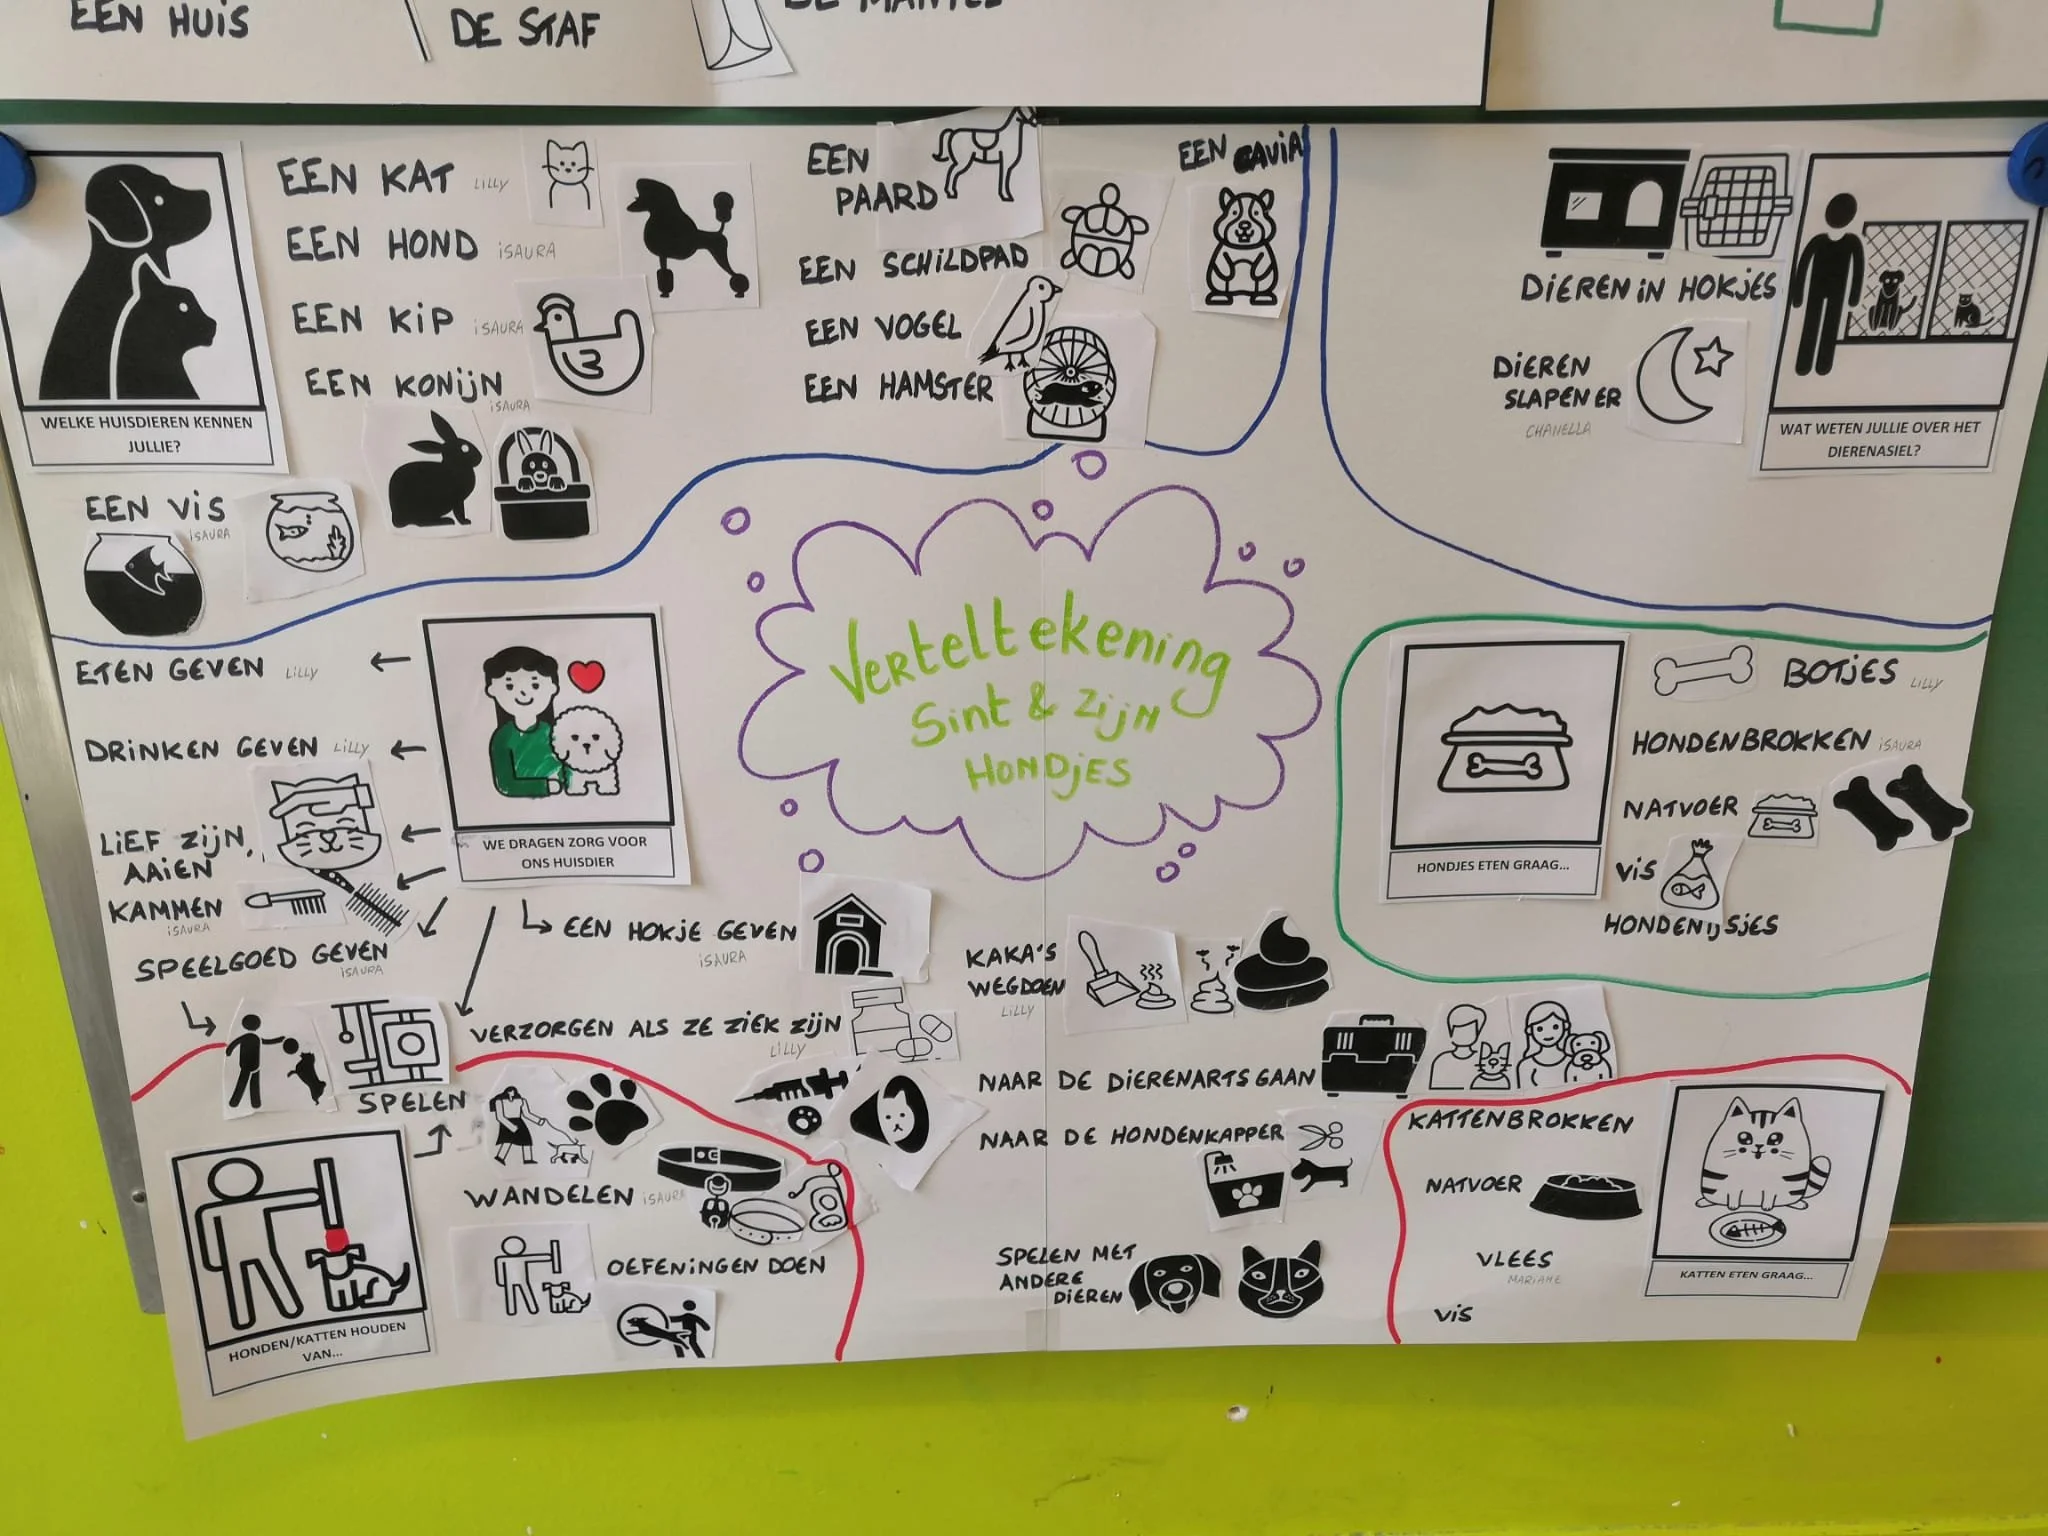 EEN HUIS
DE STAF
DE MANTEL
EEN KAT LILLY
EEN HOND ISAURA
EEN KIP ISAURA
EEN KONIJN
ISAURA
WELKE HUISDIEREN KENNEN
JULLIE?
EEN VIS
ISAURA
EEN
PAARD
EEN SCHILDPAD
EEN VOGEL
EEN HAMSTER
EEN CAVIA
DIEREN IN HOKJES
DIEREN
SLAPEN ER
CHANELLA
WAT WETEN JULLIE OVER HET
DIERENASIEL?
Verteltekening
Sint & zijn
HONDJES
ETEN GEVEN LILLY
DRINKEN GEVEN LILLY
LIEF ZIJN,
AAIEN
KAMMEN
ISAURA
SPEELGOED GEVEN
ISAURA
WE DRAGEN ZORG VOOR
ONS HUISDIER
EEN HOKJE GEVEN
ISAURA
VERZORGEN ALS ZE ZIEK ZIJN
LILLY
KAKA'S
WEGDOEN
LILLY
NAAR DE DIERENARTS GAAN
NAAR DE HONDENKAPPER
SPELEN MET
ANDERE
DIEREN
HONDJES ETEN GRAAG...
BOTJES LILLY
HONDENBROKKEN ISAURA
NATVOER
VIS
HONDENIJSJES
SPELEN
WANDELEN ISAURA
OEFENINGEN DOEN
HONDEN/KATTEN HOUDEN
VAN...
KATTENBROKKEN
NATVOER
VLEES
MARIAME
VIS
KATTEN ETEN GRAAG...